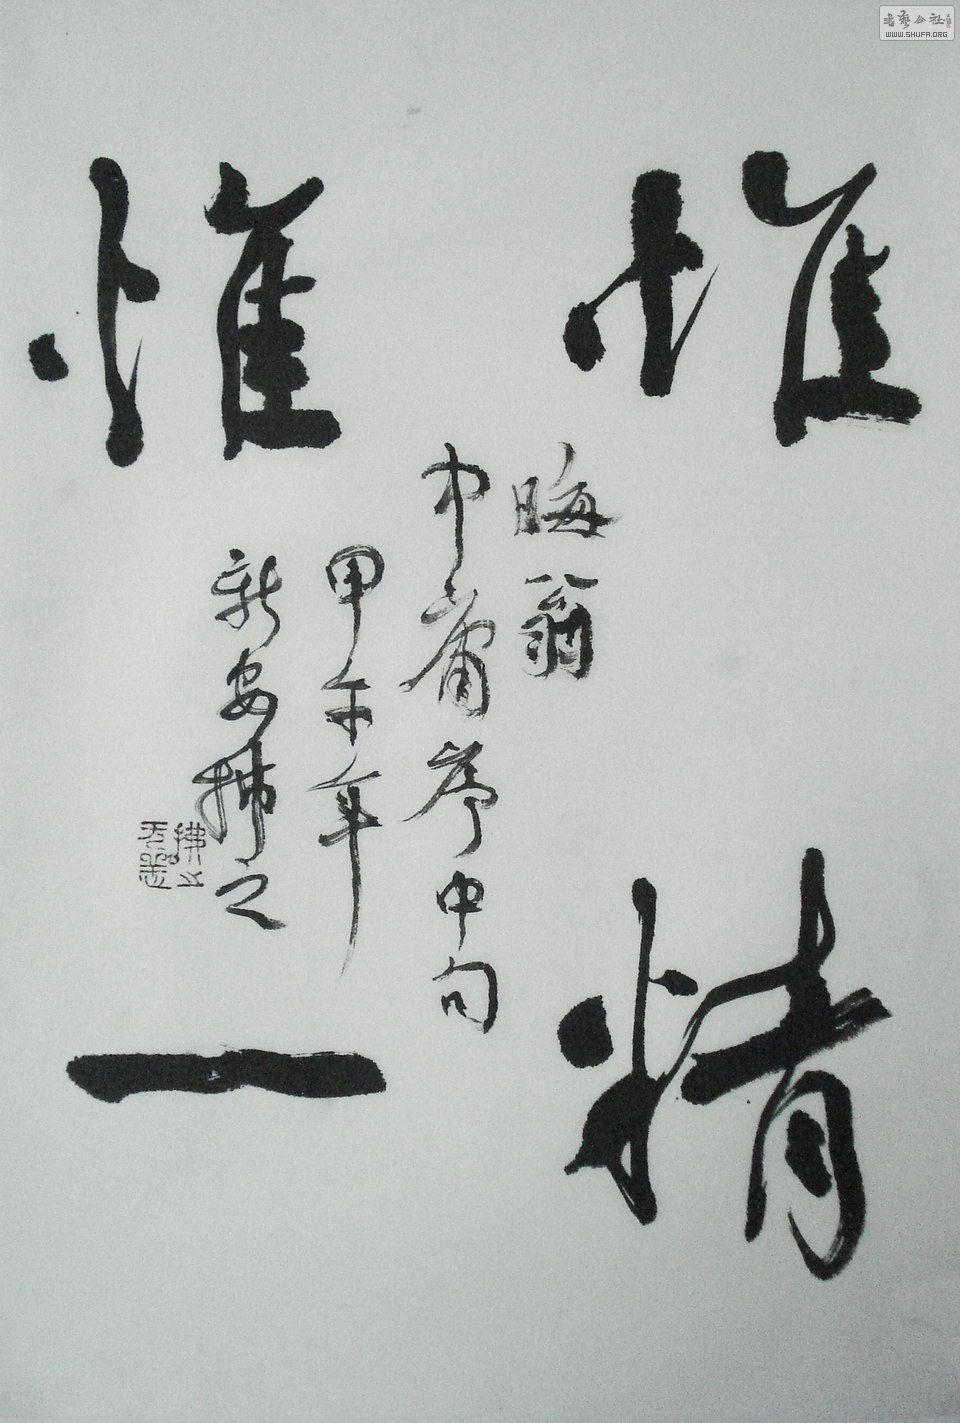 惟精
惟一
晦翁
中庸序中句
甲午年
新安拂之
书艺公社
WWW.SHUFA.ORG